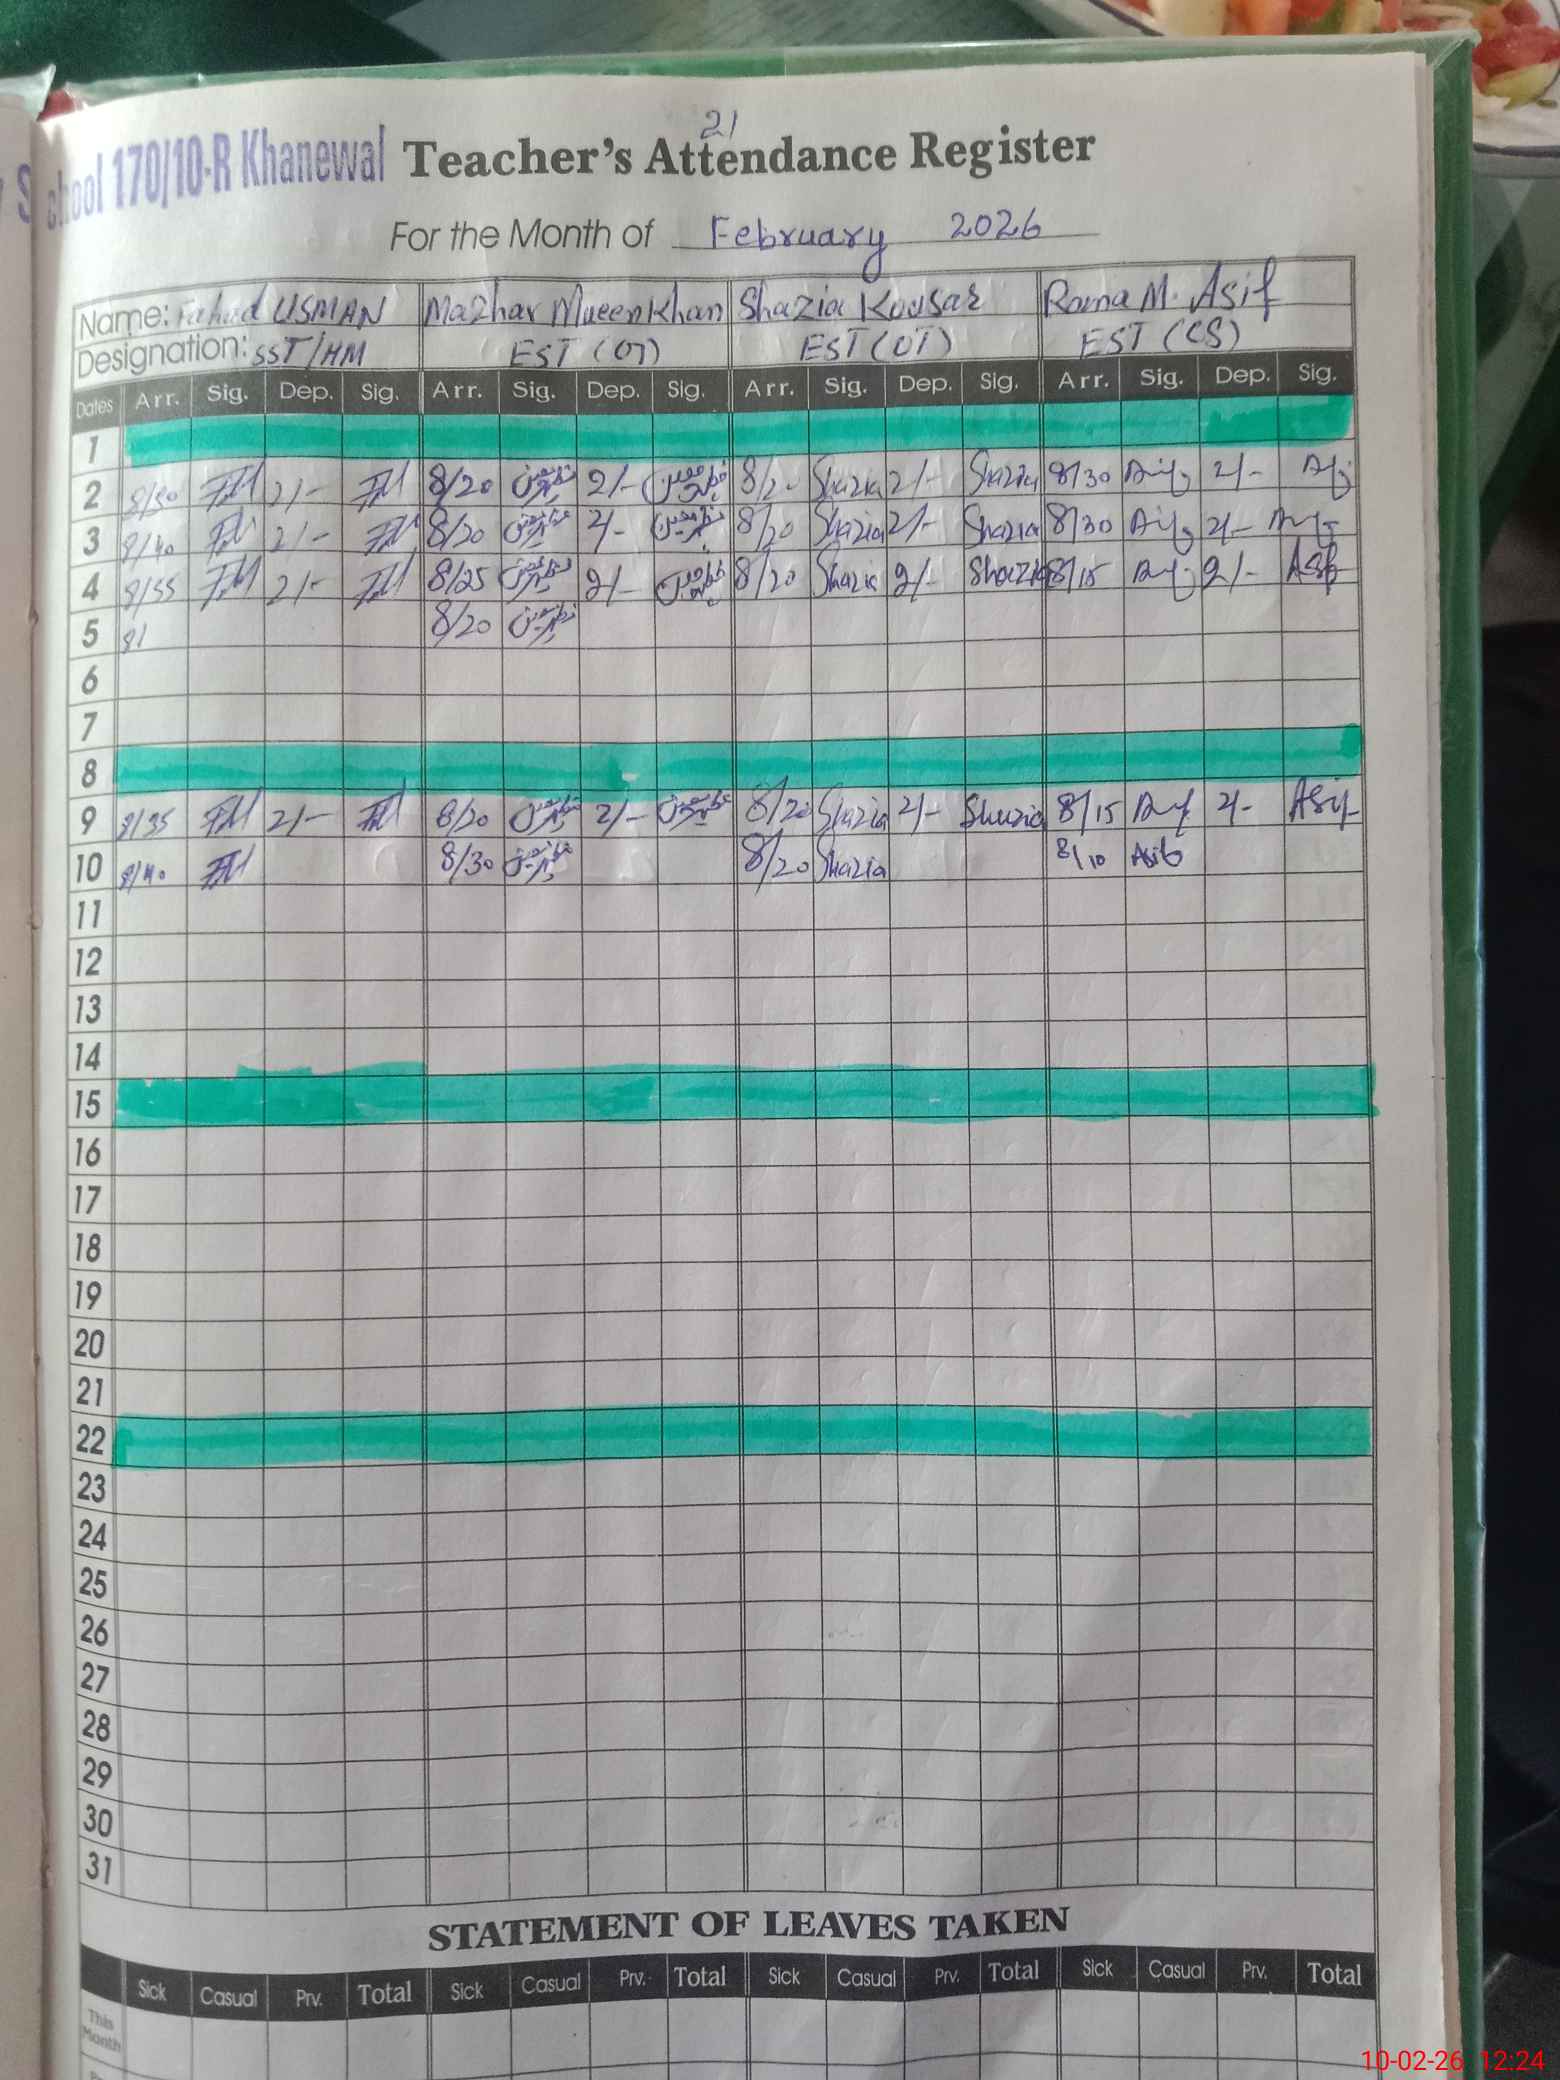 21
School 170/10-R Khanewal Teacher's Attendance Register
For the Month of February 2026
Name: Fahad USMAN Mazhar Mueen Khan Shazia Kousar Rana M. Asif
Designation: SST/HM EST (OT) EST (OT) EST (CS)
Dates Arr. Sig. Dep. Sig. Arr. Sig. Dep. Sig. Arr. Sig. Dep. Sig. Arr. Sig. Dep. Sig.
1
2 8/30 2/- 8/20 2/- 8/20 Shazia 2/- Shazia 8/30 2/-
3 8/40 2/- 8/20 2/- 8/20 Shazia 2/- Shazia 8/30 2/-
4 8/35 2/- 8/25 2/- 8/20 Shazia 2/- Shazia 8/15 2/- Asif
5 8/ 8/20
6
7
8
9 8/35 2/- 8/20 2/- 8/20 Shazia 2/- Shazia 8/15 2/- Asif
10 8/40 8/30 8/20 Shazia 8/10 Asif
11
12
13
14
15
16
17
18
19
20
21
22
23
24
25
26
27
28
29
30
31
STATEMENT OF LEAVES TAKEN
Sick Casual Prv. Total Sick Casual Prv. Total Sick Casual Prv. Total Sick Casual Prv. Total
This
Month
10-02-26 12:24